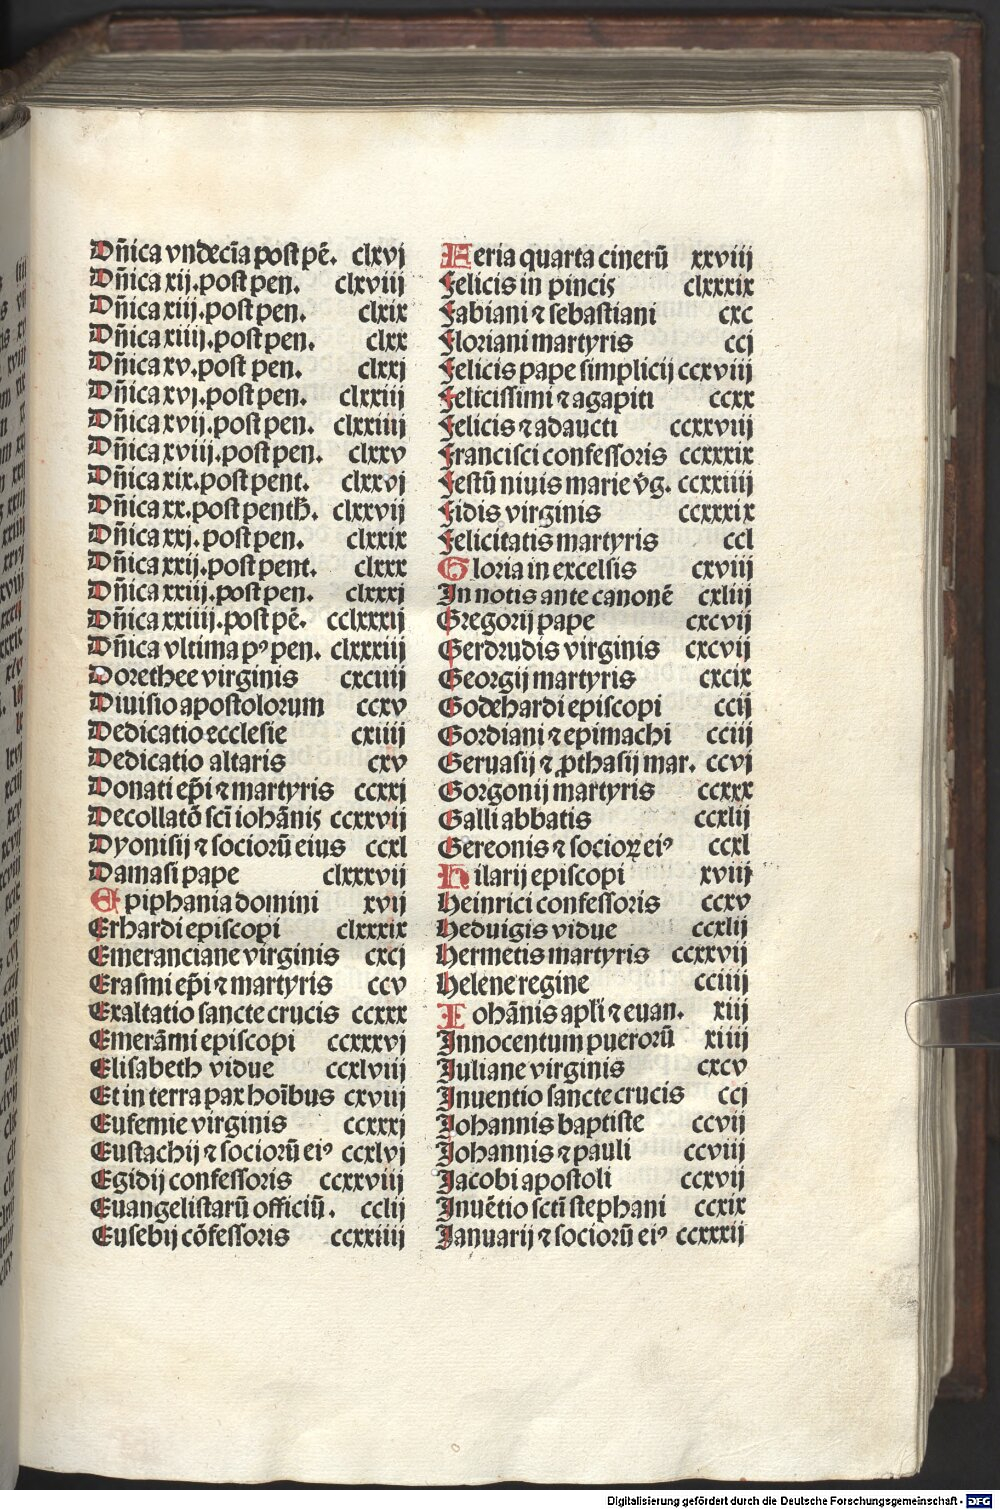 Dn̄ica vndecīa post pē. clxvj
Dn̄ica xij. post pen. clxviij
Dn̄ica xiij. post pen. clxix
Dn̄ica xiiij. post pen. clxx
Dn̄ica xv. post pen. clxxj
Dn̄ica xvj. post pen. clxxiij
Dn̄ica xvij. post pen. clxxiiij
Dn̄ica xviij. post pen. clxxv
Dn̄ica xix. post pent. clxxvj
Dn̄ica xx. post penth̄. clxxvij
Dn̄ica xxj. post pen. clxxix
Dn̄ica xxij. post pent. clxxx
Dn̄ica xxiij. post pen. clxxxj
Dn̄ica xxiiij. post pē. cclxxxij
Dn̄ica vltima pꝰ pen. clxxxiij
Dorethee virginis cxciiij
Diuisio apostolorum ccxv
Dedicatio ecclesie cxiiij
Dedicatio altaris cxv
Donati ep̄i ⁊ martyris ccxxj
Decollatō scī iohānis ccxxvij
Dyonisij ⁊ sociorū eius ccxl
Damasi pape clxxxvij
Epiphania domini xvij
Erhardi episcopi clxxxix
Emeranciane virginis cxcj
Erasmi ep̄i ⁊ martyris ccv
Exaltatio sancte crucis ccxxx
Emerāmi episcopi ccxxxvj
Elisabeth vidue ccxlviij
Et in terra pax hoīibus cxviij
Eufemie virginis ccxxxj
Eustachij ⁊ sociorū eiꝰ ccxlvj
Egidij confessoris ccxxviij
Euangelistarū officiū. cclij
Eusebij cōfessoris ccxxiiij
Feria quarta cinerū xxviij
Felicis in pincis clxxxix
Fabiani ⁊ sebastiani cxc
Floriani martyris ccj
Felicis pape simplicij ccxviij
Felicissimi ⁊ agapiti ccxx
Felicis ⁊ adaucti ccxxviij
Francisci confessoris ccxxxix
Festū niuis marie v̄g. ccxxiiij
Fidis virginis ccxxxix
Felicitatis martyris ccl
Gloria in excelsis cxviij
In notis ante canonē cxliij
Gregorij pape cxcvij
Gerdrudis virginis cxcvij
Georgij martyris cxcix
Godehardi episcopi ccij
Gordiani ⁊ epimachi cciij
Geruasij ⁊ ꝓthasij mar. ccvj
Gorgonij martyris ccxxx
Galli abbatis ccxlij
Gereonis ⁊ socioꝝ eiꝰ ccxl
Hilarij episcopi xviij
Heinrici confessoris ccxv
Heduigis vidue ccxlij
Hermetis martyris ccxxvij
Helene regine cciiij
Iohānis apl̄i ⁊ euan. xiij
Innocentum puerorū xiiij
Iuliane virginis cxcv
Inuentio sancte crucis ccj
Iohannis baptiste ccvij
Iohannis ⁊ pauli ccviij
Iacobi apostoli ccxvij
Inuētio scti stephani ccxix
Ianuarij ⁊ sociorū eiꝰ ccxxxij
Digitalisierung gefördert durch die Deutsche Forschungsgemeinschaft - DFG